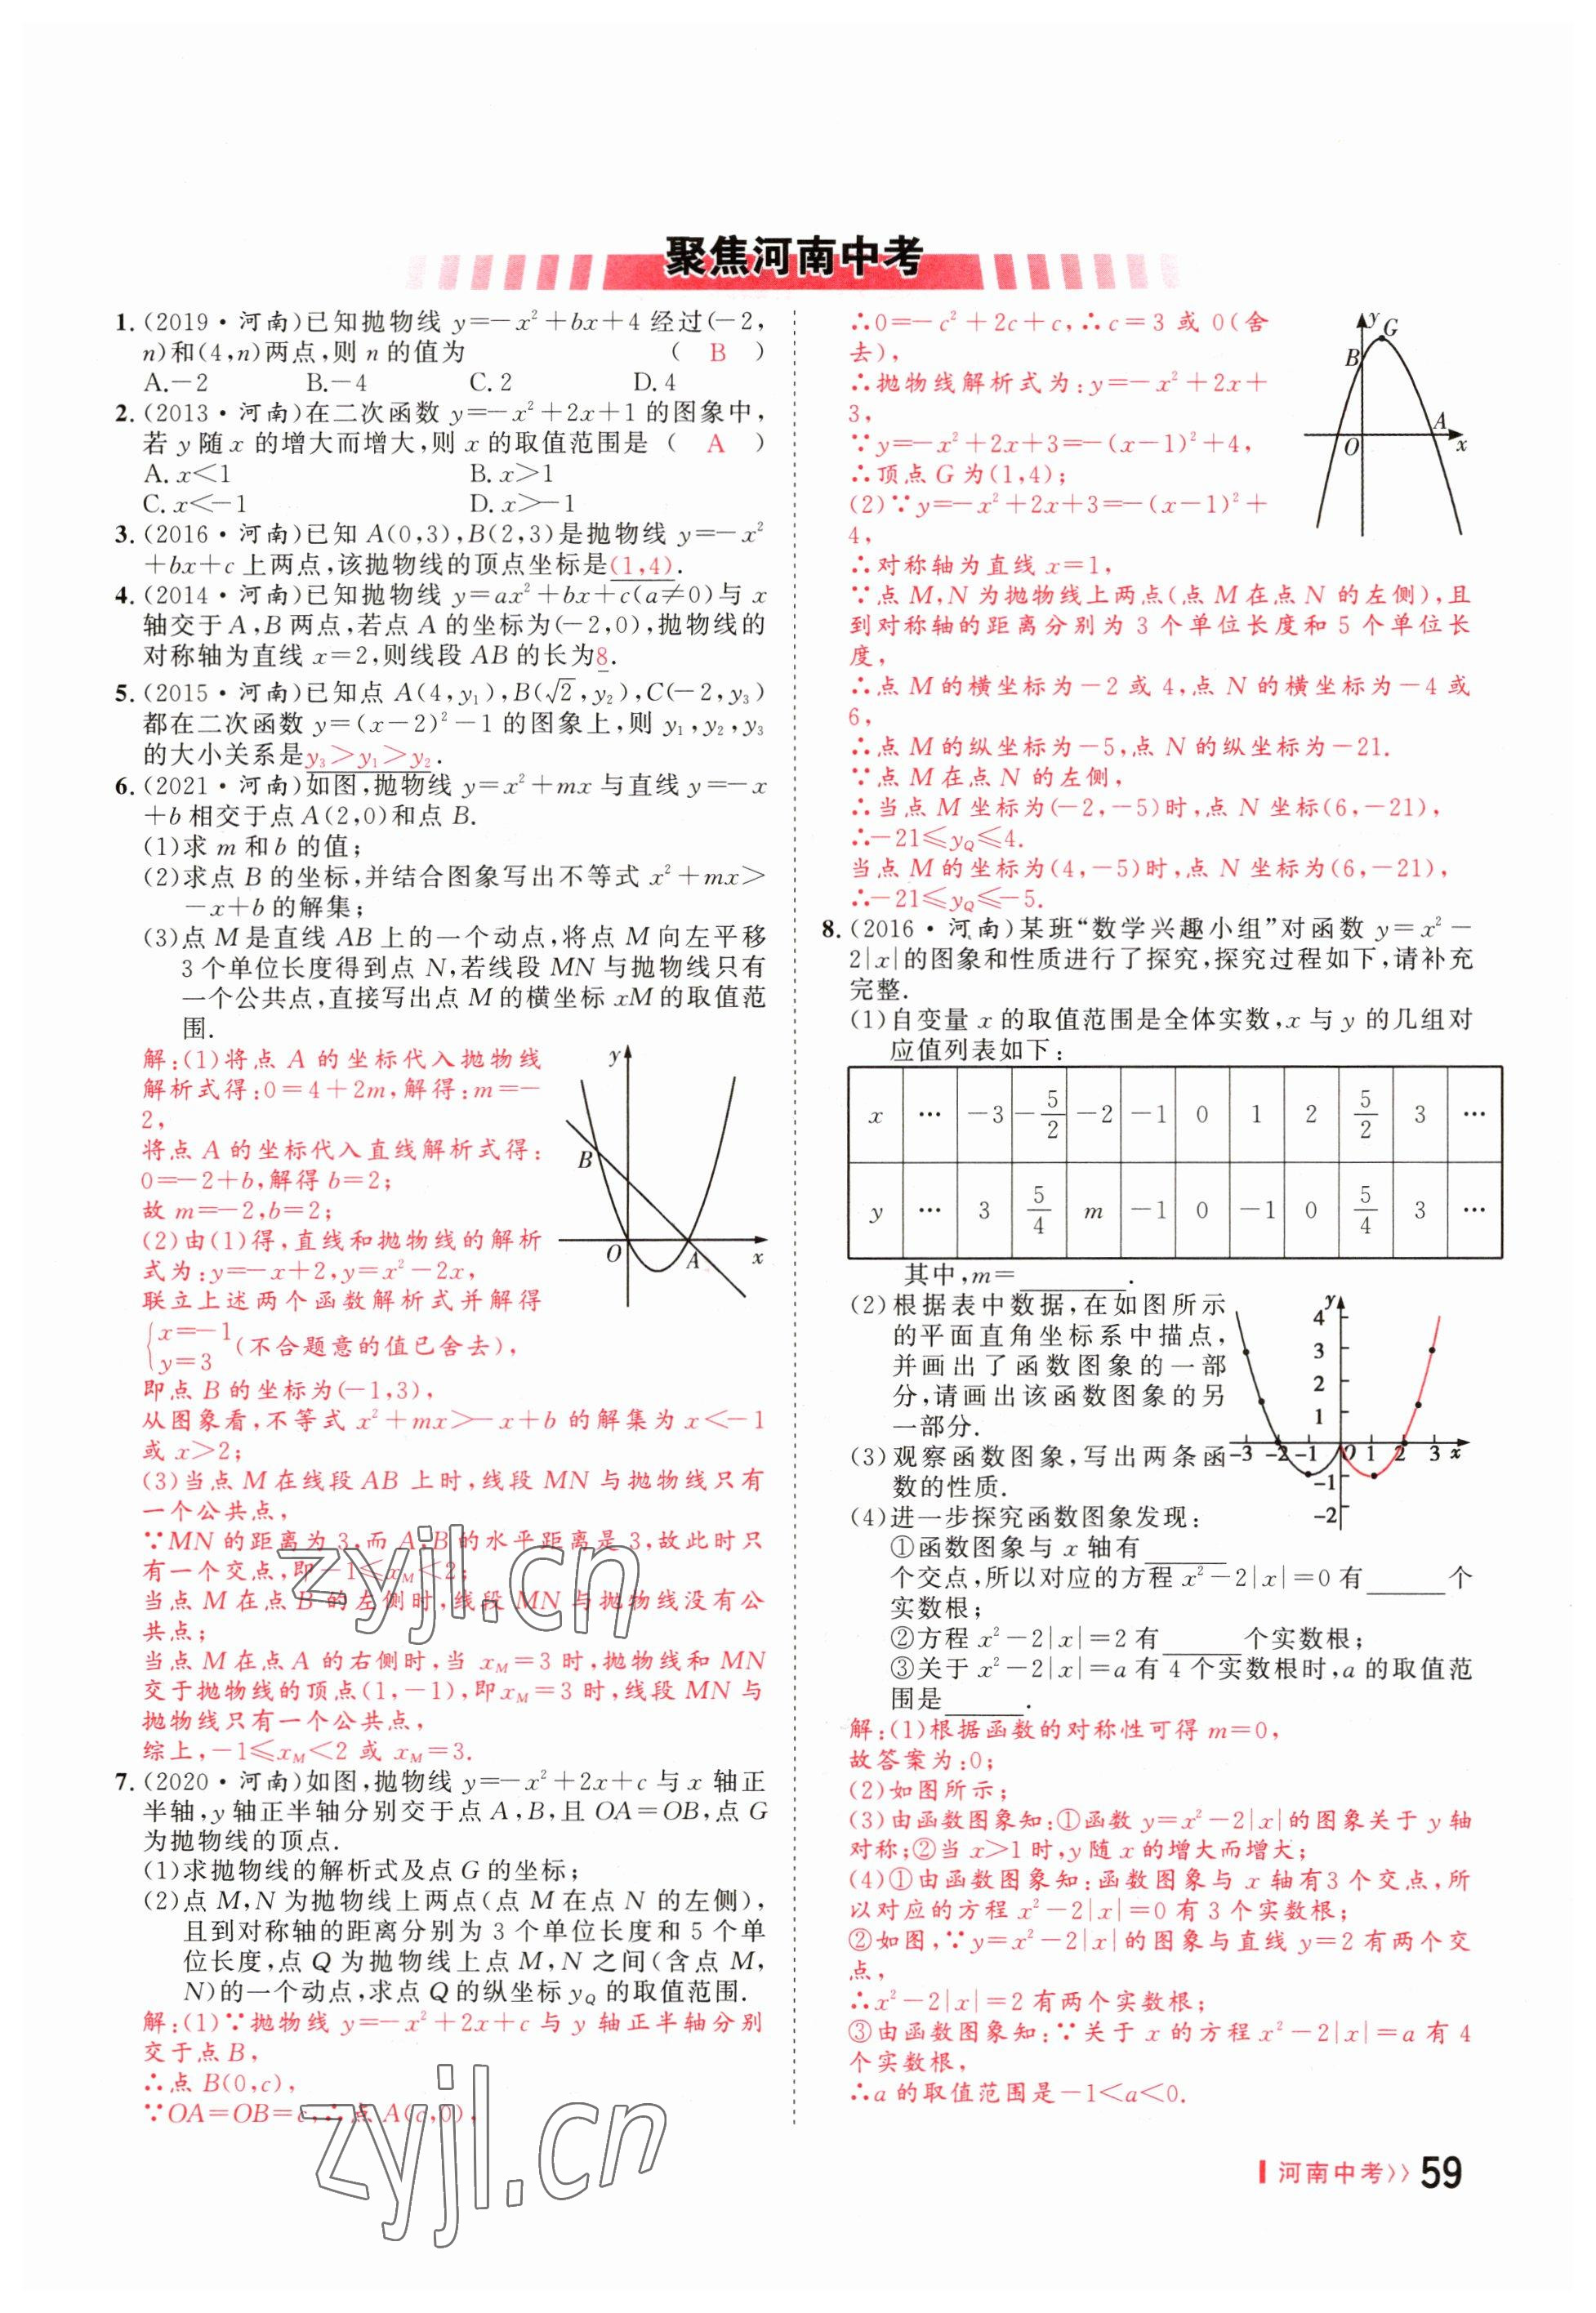 聚焦河南中考
1.(2019·河南)已知抛物线 y=-x²+bx+4 经过(-2,
n)和(4,n)两点,则 n 的值为 ( B )
A.-2 B.-4 C.2 D.4
2.(2013·河南)在二次函数 y=-x²+2x+1 的图象中,
若 y 随 x 的增大而增大,则 x 的取值范围是 ( A )
A.x<1 B.x>1
C.x<-1 D.x>-1
3.(2016·河南)已知 A(0,3),B(2,3)是抛物线 y=-x²
+bx+c 上两点,该抛物线的顶点坐标是(1,4).
4.(2014·河南)已知抛物线 y=ax²+bx+c(a≠0)与 x
轴交于A,B两点,若点 A 的坐标为(-2,0),抛物线的
对称轴为直线 x=2,则线段 AB 的长为8.
5.(2015·河南)已知点 A(4,y₁),B(√2,y₂),C(-2,y₃)
都在二次函数 y=(x-2)²-1 的图象上,则 y₁,y₂,y₃
的大小关系是y₃>y₁>y₂.
6.(2021·河南)如图,抛物线 y=x²+mx 与直线 y=-x
+b相交于点A(2,0)和点 B.
(1)求 m 和b 的值;
(2)求点 B 的坐标,并结合图象写出不等式 x²+mx>
-x+b 的解集;
(3)点 M 是直线 AB 上的一个动点,将点 M 向左平移
3个单位长度得到点 N,若线段 MN 与抛物线只有
一个公共点,直接写出点 M 的横坐标 xM 的取值范
围.
解:(1)将点 A 的坐标代入抛物线
解析式得:0=4+2m,解得:m=-
2,
将点 A 的坐标代入直线解析式得:
0=-2+b,解得 b=2;
故 m=-2,b=2;
(2)由(1)得,直线和抛物线的解析
式为:y=-x+2,y=x²-2x,
联立上述两个函数解析式并解得
{x=-1
y=3 (不合题意的值已舍去),
即点 B 的坐标为(-1,3),
从图象看,不等式 x²+mx>-x+b 的解集为 x<-1
或 x>2;
(3)当点 M 在线段 AB 上时,线段 MN 与抛物线只有
一个公共点,
∵MN 的距离为 3,而 A,B 的水平距离是 3,故此时只
有一个交点,即-1≤xM<2;
当点 M 在点 B 的左侧时,线段 MN 与抛物线没有公
共点;
当点 M 在点 A 的右侧时,当 xM=3 时,抛物线和 MN
交于抛物线的顶点(1,-1),即xM=3 时,线段 MN 与
抛物线只有一个公共点,
综上,-1≤xM<2 或 xM=3.
y
B
O
A
x
7.(2020·河南)如图,抛物线 y=-x²+2x+c 与 x 轴正
半轴,y 轴正半轴分别交于点 A,B,且 OA=OB,点 G
为抛物线的顶点.
(1)求抛物线的解析式及点 G 的坐标;
(2)点 M,N 为抛物线上两点(点 M 在点 N 的左侧),
且到对称轴的距离分别为 3 个单位长度和 5 个单
位长度,点 Q 为抛物线上点 M,N 之间(含点 M,
N)的一个动点,求点 Q 的纵坐标 yQ 的取值范围.
解:(1)∵抛物线 y=-x²+2x+c 与 y 轴正半轴分别
交于点 B,
∴点 B(0,c),
∵OA=OB=c,∴点 A(c,0),
∴0=-c²+2c+c,∴c=3 或 0(舍
去),
∴抛物线解析式为:y=-x²+2x+
3,
∵y=-x²+2x+3=-(x-1)²+4,
∴顶点 G 为(1,4);
(2)∵y=-x²+2x+3=-(x-1)²+
4,
∴对称轴为直线 x=1,
∵点 M,N 为抛物线上两点(点 M 在点 N 的左侧),且
到对称轴的距离分别为 3 个单位长度和 5 个单位长
度,
∴点 M 的横坐标为-2 或 4,点 N 的横坐标为-4 或
6,
∴点 M 的纵坐标为-5,点 N 的纵坐标为-21.
∵点 M 在点 N 的左侧,
∴当点 M 坐标为(-2,-5)时,点 N 坐标(6,-21),
∴-21≤yQ≤4.
当点 M 的坐标为(4,-5)时,点 N 坐标为(6,-21),
∴-21≤yQ≤-5.
y
G
B
A
O
x
8.(2016·河南)某班“数学兴趣小组”对函数 y=x²-
2|x|的图象和性质进行了探究,探究过程如下,请补充
完整.
(1)自变量 x 的取值范围是全体实数,x 与 y 的几组对
应值列表如下:
x … -3 -5/2 -2 -1 0 1 2 5/2 3 …
y … 3 5/4 m -1 0 -1 0 5/4 3 …
其中,m=______.
(2)根据表中数据,在如图所示
的平面直角坐标系中描点,
并画出了函数图象的一部
分,请画出该函数图象的另
一部分.
(3)观察函数图象,写出两条函
数的性质.
(4)进一步探究函数图象发现:
①函数图象与 x 轴有______
个交点,所以对应的方程 x²-2|x|=0 有______个
实数根;
②方程 x²-2|x|=2 有______个实数根;
③关于 x²-2|x|=a 有 4 个实数根时,a 的取值范
围是______.
y
4
3
2
1
-3 -2 -1 O 1 2 3 x
-1
-2
解:(1)根据函数的对称性可得 m=0,
故答案为:0;
(2)如图所示;
(3)由函数图象知:①函数 y=x²-2|x|的图象关于 y 轴
对称;②当 x>1 时,y 随 x 的增大而增大;
(4)①由函数图象知:函数图象与 x 轴有3 个交点,所
以对应的方程 x²-2|x|=0 有 3 个实数根;
②如图,∵y=x²-2|x|的图象与直线 y=2 有两个交
点,
∴x²-2|x|=2 有两个实数根;
③由函数图象知:∵关于 x 的方程 x²-2|x|=a 有 4
个实数根,
∴a 的取值范围是-1<a<0.
zyjl.cn
zyjl.cn
河南中考>> 59